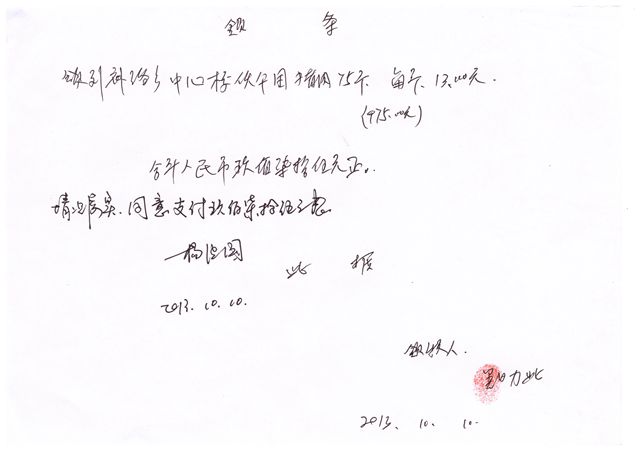 领 条
领到补洛乡中心校伙食团猪肉75斤, 每斤13.00元.
(975.00元)
合计人民币玖佰柒拾伍元正。
情况属实、同意支付玖佰柒拾伍元整
杨
此 据
2013. 10. 10.
领款人
力
2013. 10. 10.